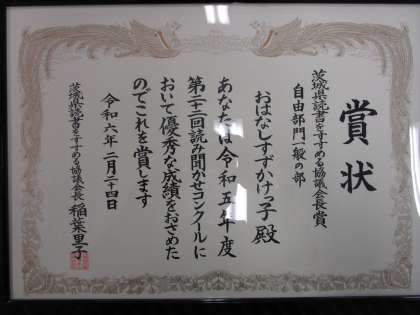 賞状
茨城県読書をすすめる協議会長賞
自由部門一般の部
おはなしすずかけっ子殿
あなたは令和五年度
第二十二回読み聞かせコンクールに
おいて優秀な成績をおさめた
のでこれを賞します
令和六年二月二十四日
茨城県読書をすすめる協議会長 稲葉里子